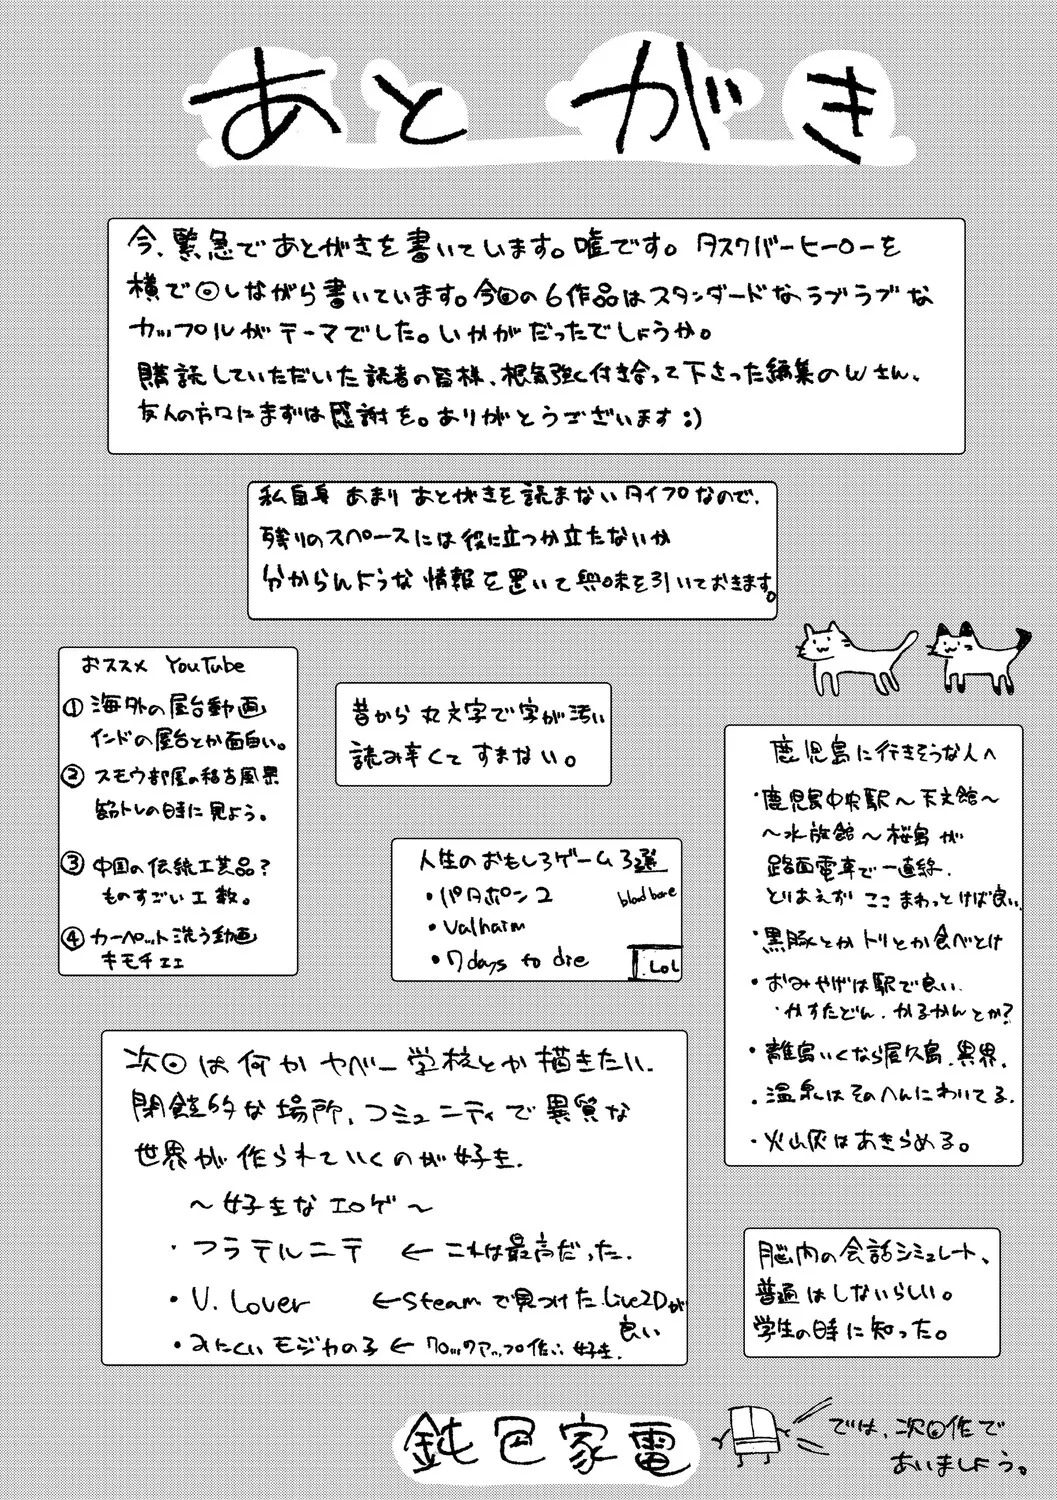 あとがき
今、緊急であとがきを書いています。嘘です。タスクバーヒーローを
横で回しながら書いています。今回の6作品はスタンダードなラブラブな
カップルがテーマでした。いかがだったでしょうか。
購読していただいた読者の皆様、根気強く付き合って下さった編集のWさん、
友人の方々にまずは感謝を。ありがとうございます:)
私自身あまりあとがきを読まないタイプなので、
残りのスペースには役に立つか立たないか
分からんような情報を置いて興味を引いておきます。
おススメ YouTube
①海外の屋台動画
インドの屋台とか面白い。
②スモウ部屋の稽古風景
筋トレの時に見よう。
③中国の伝統工芸品?
ものすごい工数。
④カーペット洗う動画
キモチェェ
昔から丸文字で字が汚い
読み辛くてすまない。
人生のおもしろゲーム3選
・パタポン2
bloodbore
・Valhaim
・7days to die
LoL
鹿児島に行きそうな人へ
・鹿児島中央駅〜天文館〜
〜水族館〜桜島が
路面電車で一直線、
とりあえずここまわっとけば良い、
・黒豚とかトリとか食べとけ
・おみやげは駅で良い、
・かすたどん、かるかんとか?
・離島いくなら屋久島、異界、
・温泉はそのへんにわいてる、
・火山灰はあきらめる。
次回は何かヤベー学校とか描きたい、
閉鎖的な場所、コミュニティで異質な
世界が作られていくのが好き、
〜好きなエロゲ〜
・フラテルニテ ←これは最高だった、
・V.Lover ←Steamで見つけたLive2Dが
良い
・みにくいモジカの子←クロックアップ作い、好き、
脳内の会話シミュレート、
普通はしないらしい。
学生の時に知った。
鈍色家電
では、次回作で
あいましょう。